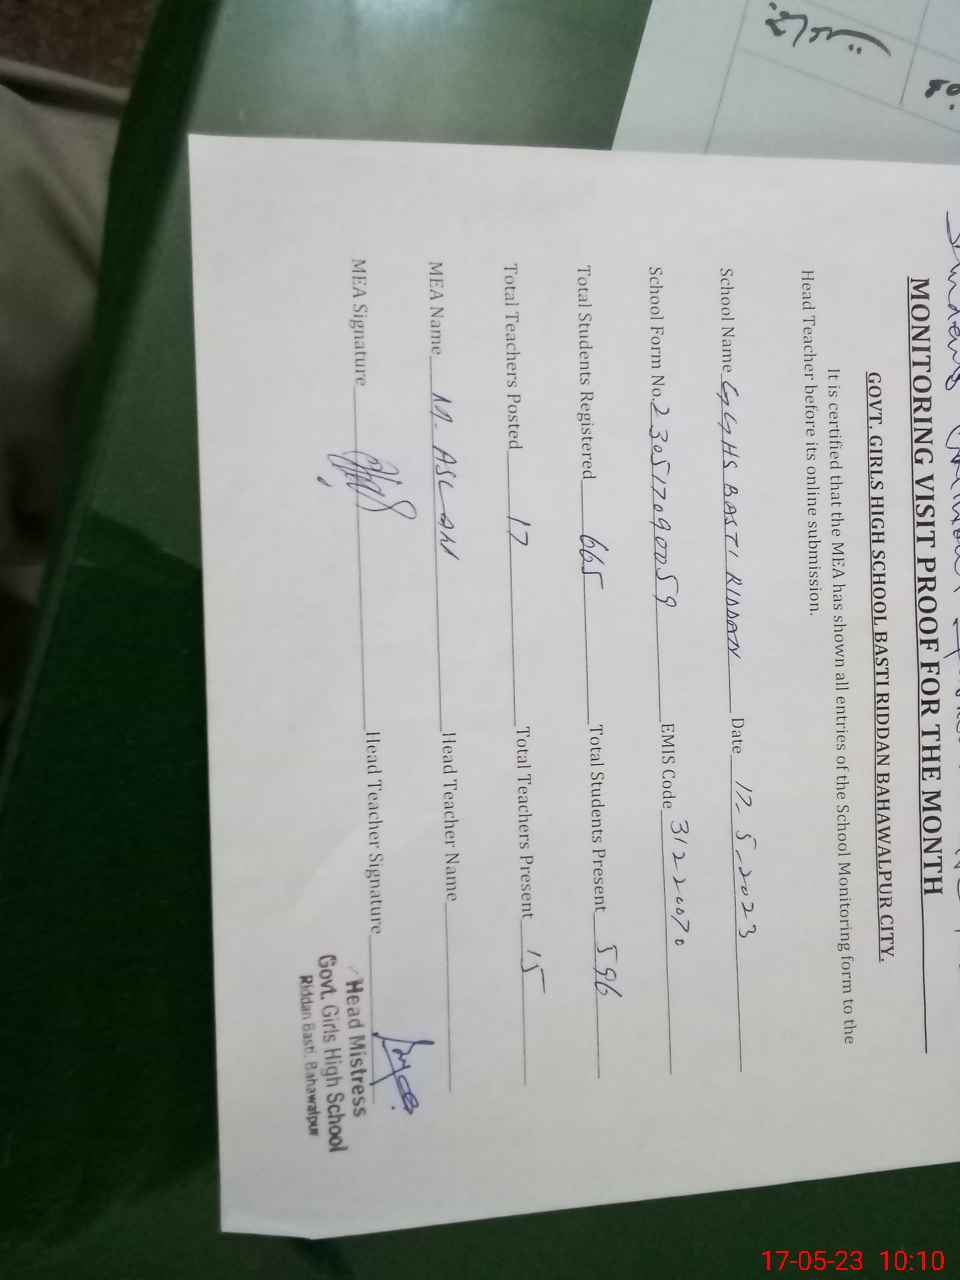 MONITORING VISIT PROOF FOR THE MONTH
GOVT. GIRLS HIGH SCHOOL BASTI RIDDAN BAHAWALPUR CITY.
It is certified that the MEA has shown all entries of the School Monitoring form to the
Head Teacher before its online submission.
School Name GGHS BASTI RIDDAN Date 17-5-2023
School Form No. 230517090059 EMIS Code 31220070
Total Students Registered 665 Total Students Present 596
Total Teachers Posted 17 Total Teachers Present 15
MEA Name M. ASLAM Head Teacher Name
MEA Signature Head Teacher Signature
Head Mistress
Govt. Girls High School
Riddan Basti, Bahawalpur
17-05-23 10:10